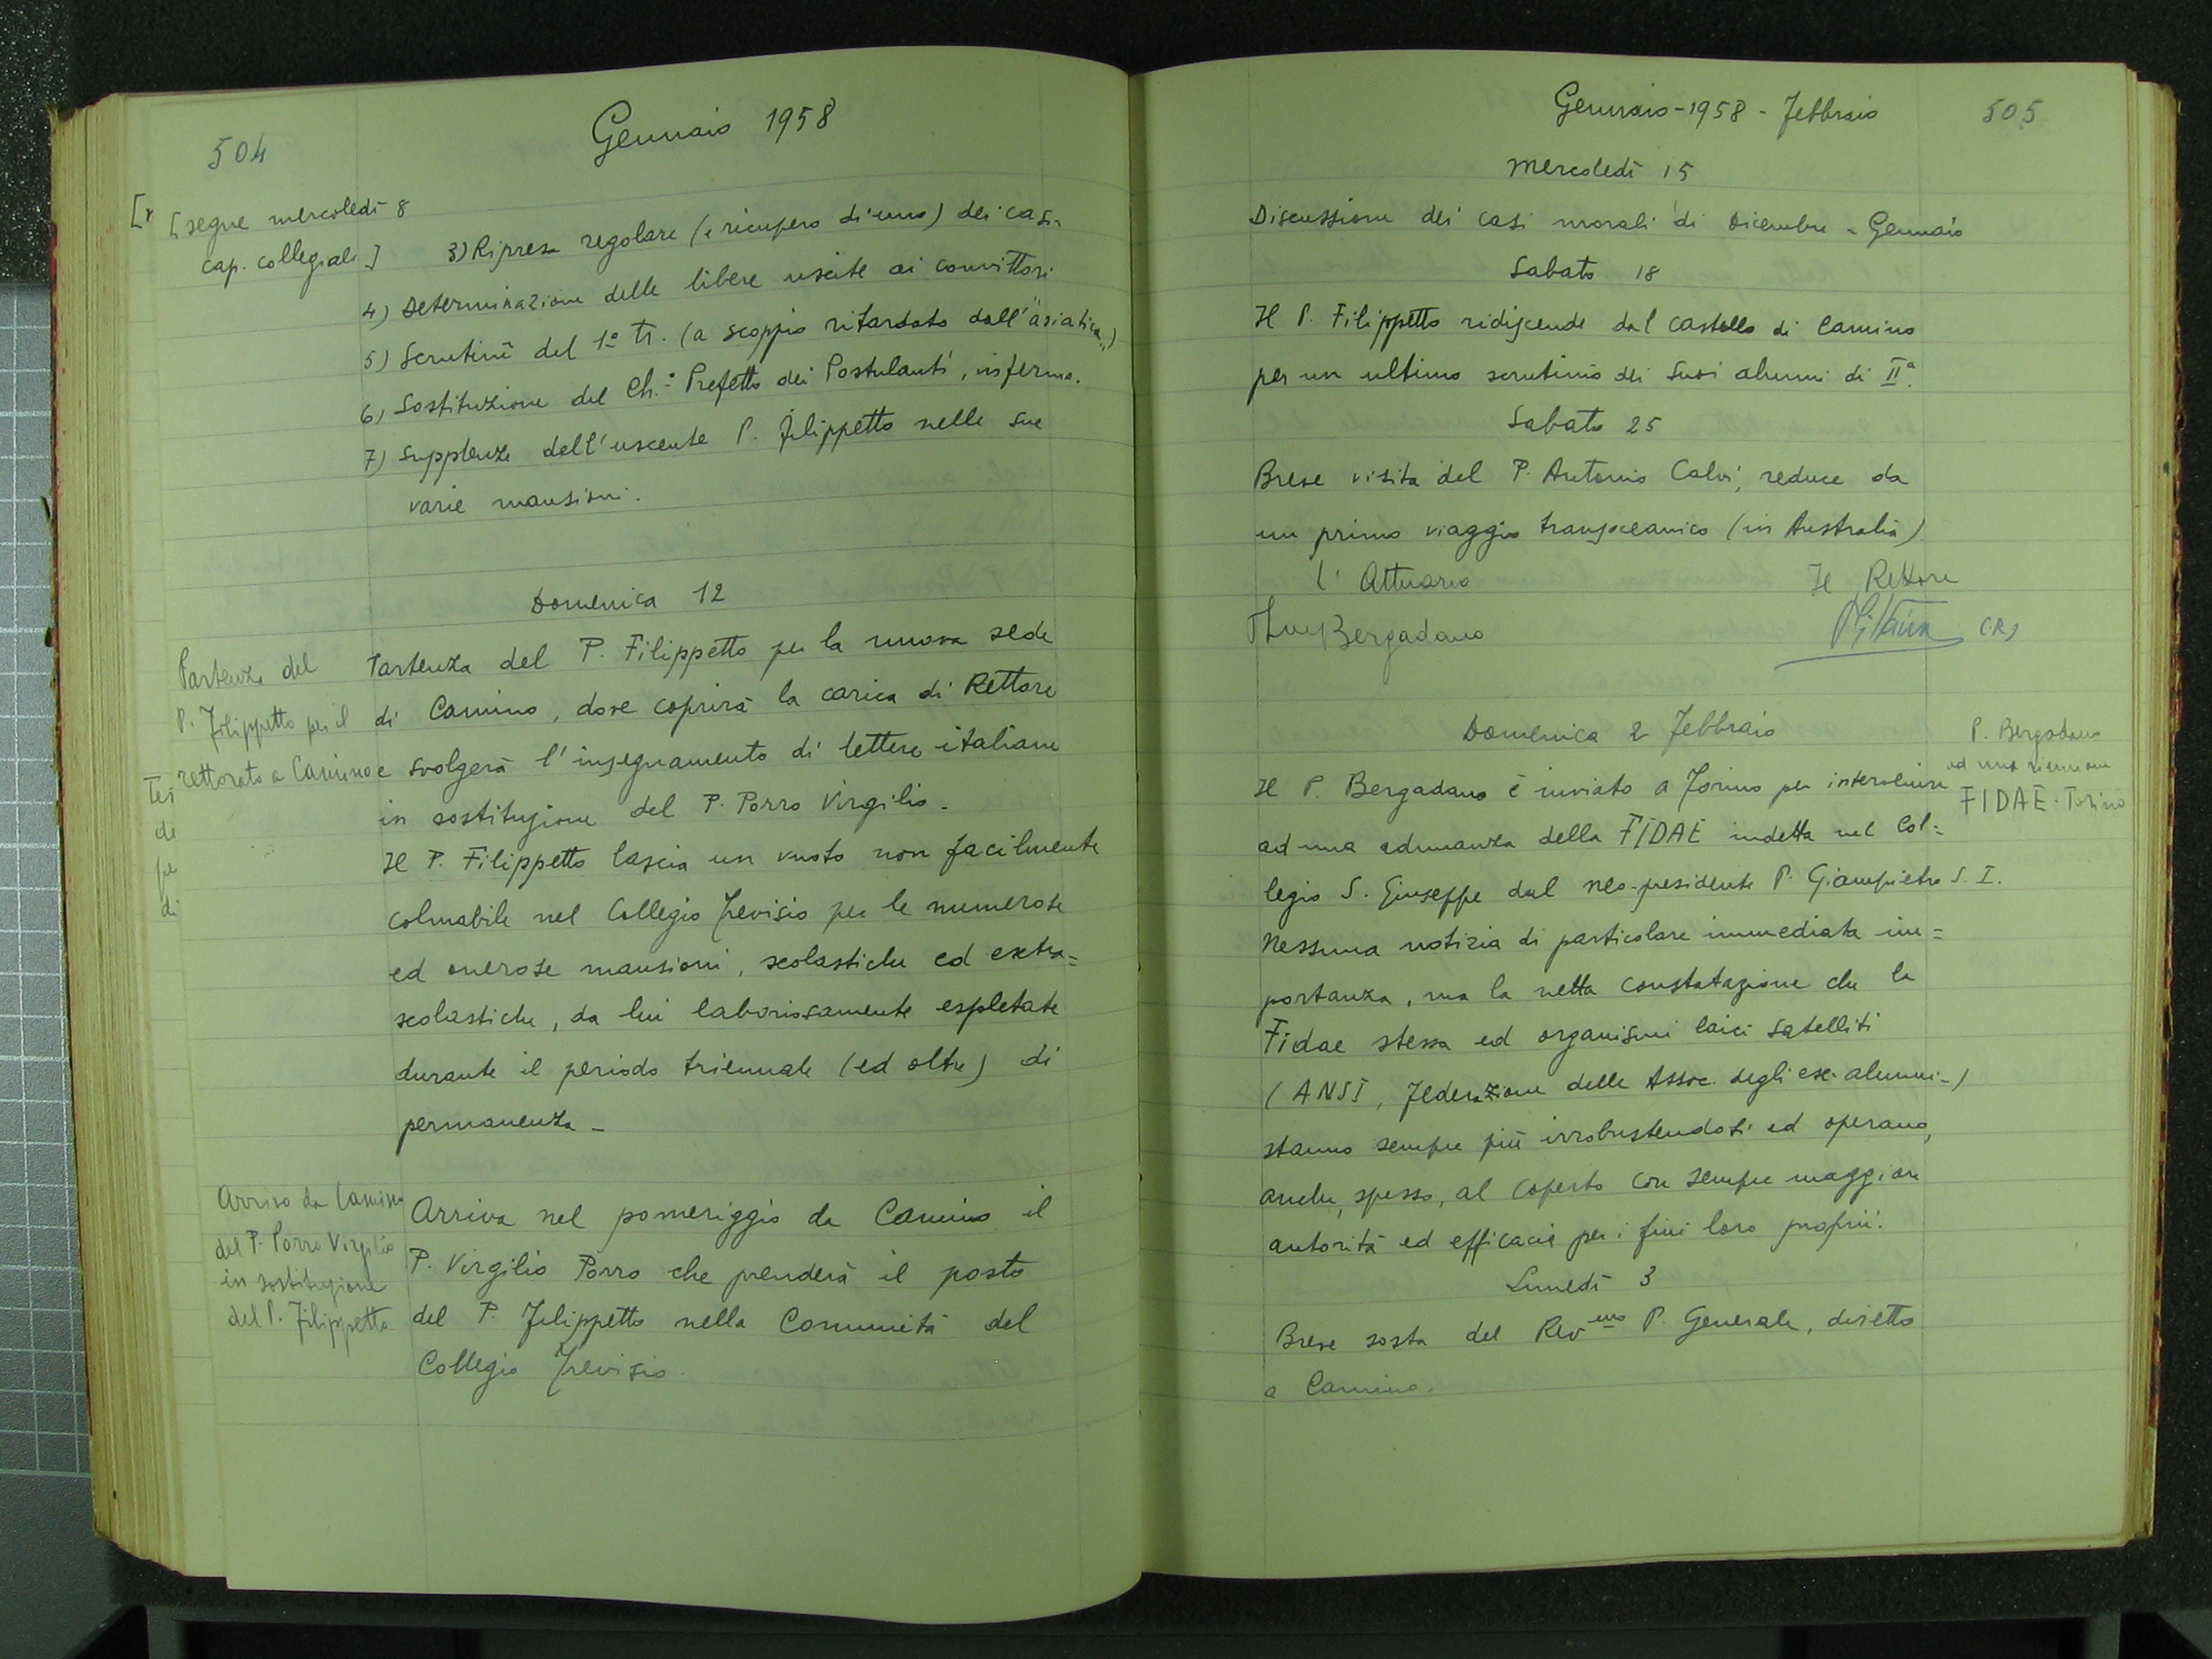 504
Gennaio 1958
[segue mercoledì 8
cap. collegiale]
3) Ripresa regolare (e ricupero di uno) dei casi
4) Determinazione delle libere uscite ai convittori
5) Scrutinî del 1º Tr. (a scoppio ritardato dall'"asiatica")
6) Sostituzione del Ch.º Prefetto dei Postulanti, infermo.
7) Supplenze dell'uscente P. Filippetto nelle sue
varie mansioni.
Domenica 12
Partenza del
P. Filippetto per il
rettorato a Camino
Partenza del P. Filippetto per la nuova sede
di Camino, dove coprirà la carica di Rettore
e svolgerà l'insegnamento di lettere italiane
in sostituzione del P. Porro Virgilio.
Il P. Filippetto lascia un vuoto non facilmente
colmabile nel Collegio Trevisio per le numerose
ed onerose mansioni, scolastiche ed extra=
scolastiche, da lui laboriosamente espletate
durante il periodo triennale (ed oltre) di
permanenza -
Arrivo da Camino
del P. Porro Virgilio
in sostituzione
del P. Filippetto
Arriva nel pomeriggio da Camino il
P. Virgilio Porro che prenderà il posto
del P. Filippetto nella Comunità del
Collegio Trevisio.
Gennaio - 1958 - Febbraio
505
Mercoledì 15
Discussione dei casi morali di Dicembre - Gennaio
Sabato 18
Il P. Filippetto ridiscende dal castello di Camino
per un ultimo scrutinio dei suoi alunni di IIª.
Sabato 25
Breve visita del P. Antonio Calvi, reduce da
un primo viaggio transoceanico (in Australia)
L'Attuario
Il Rettore
Bergadano
CRS
Domenica 2 Febbraio
P. Bergadano
ad una riunione
FIDAE - Torino
Il P. Bergadano è inviato a Torino per intervenire
ad una adunanza della FIDAE indetta nel Col=
legio S. Giuseppe dal neo-presidente P. Giampietro S. I.
Nessuna notizia di particolare immediata im=
portanza, ma la netta constatazione che la
Fidae stessa ed organismi laici satelliti
(ANSI, Federazione delle Assoc. degli ex-alunni-)
stanno sempre più irrobustendosi ed operano,
anche, spesso, al coperto con sempre maggiore
autorità ed efficacia per i fini loro proprii.
Lunedì 3
Breve sosta del Rev.mo P. Generale, diretto
a Camino.